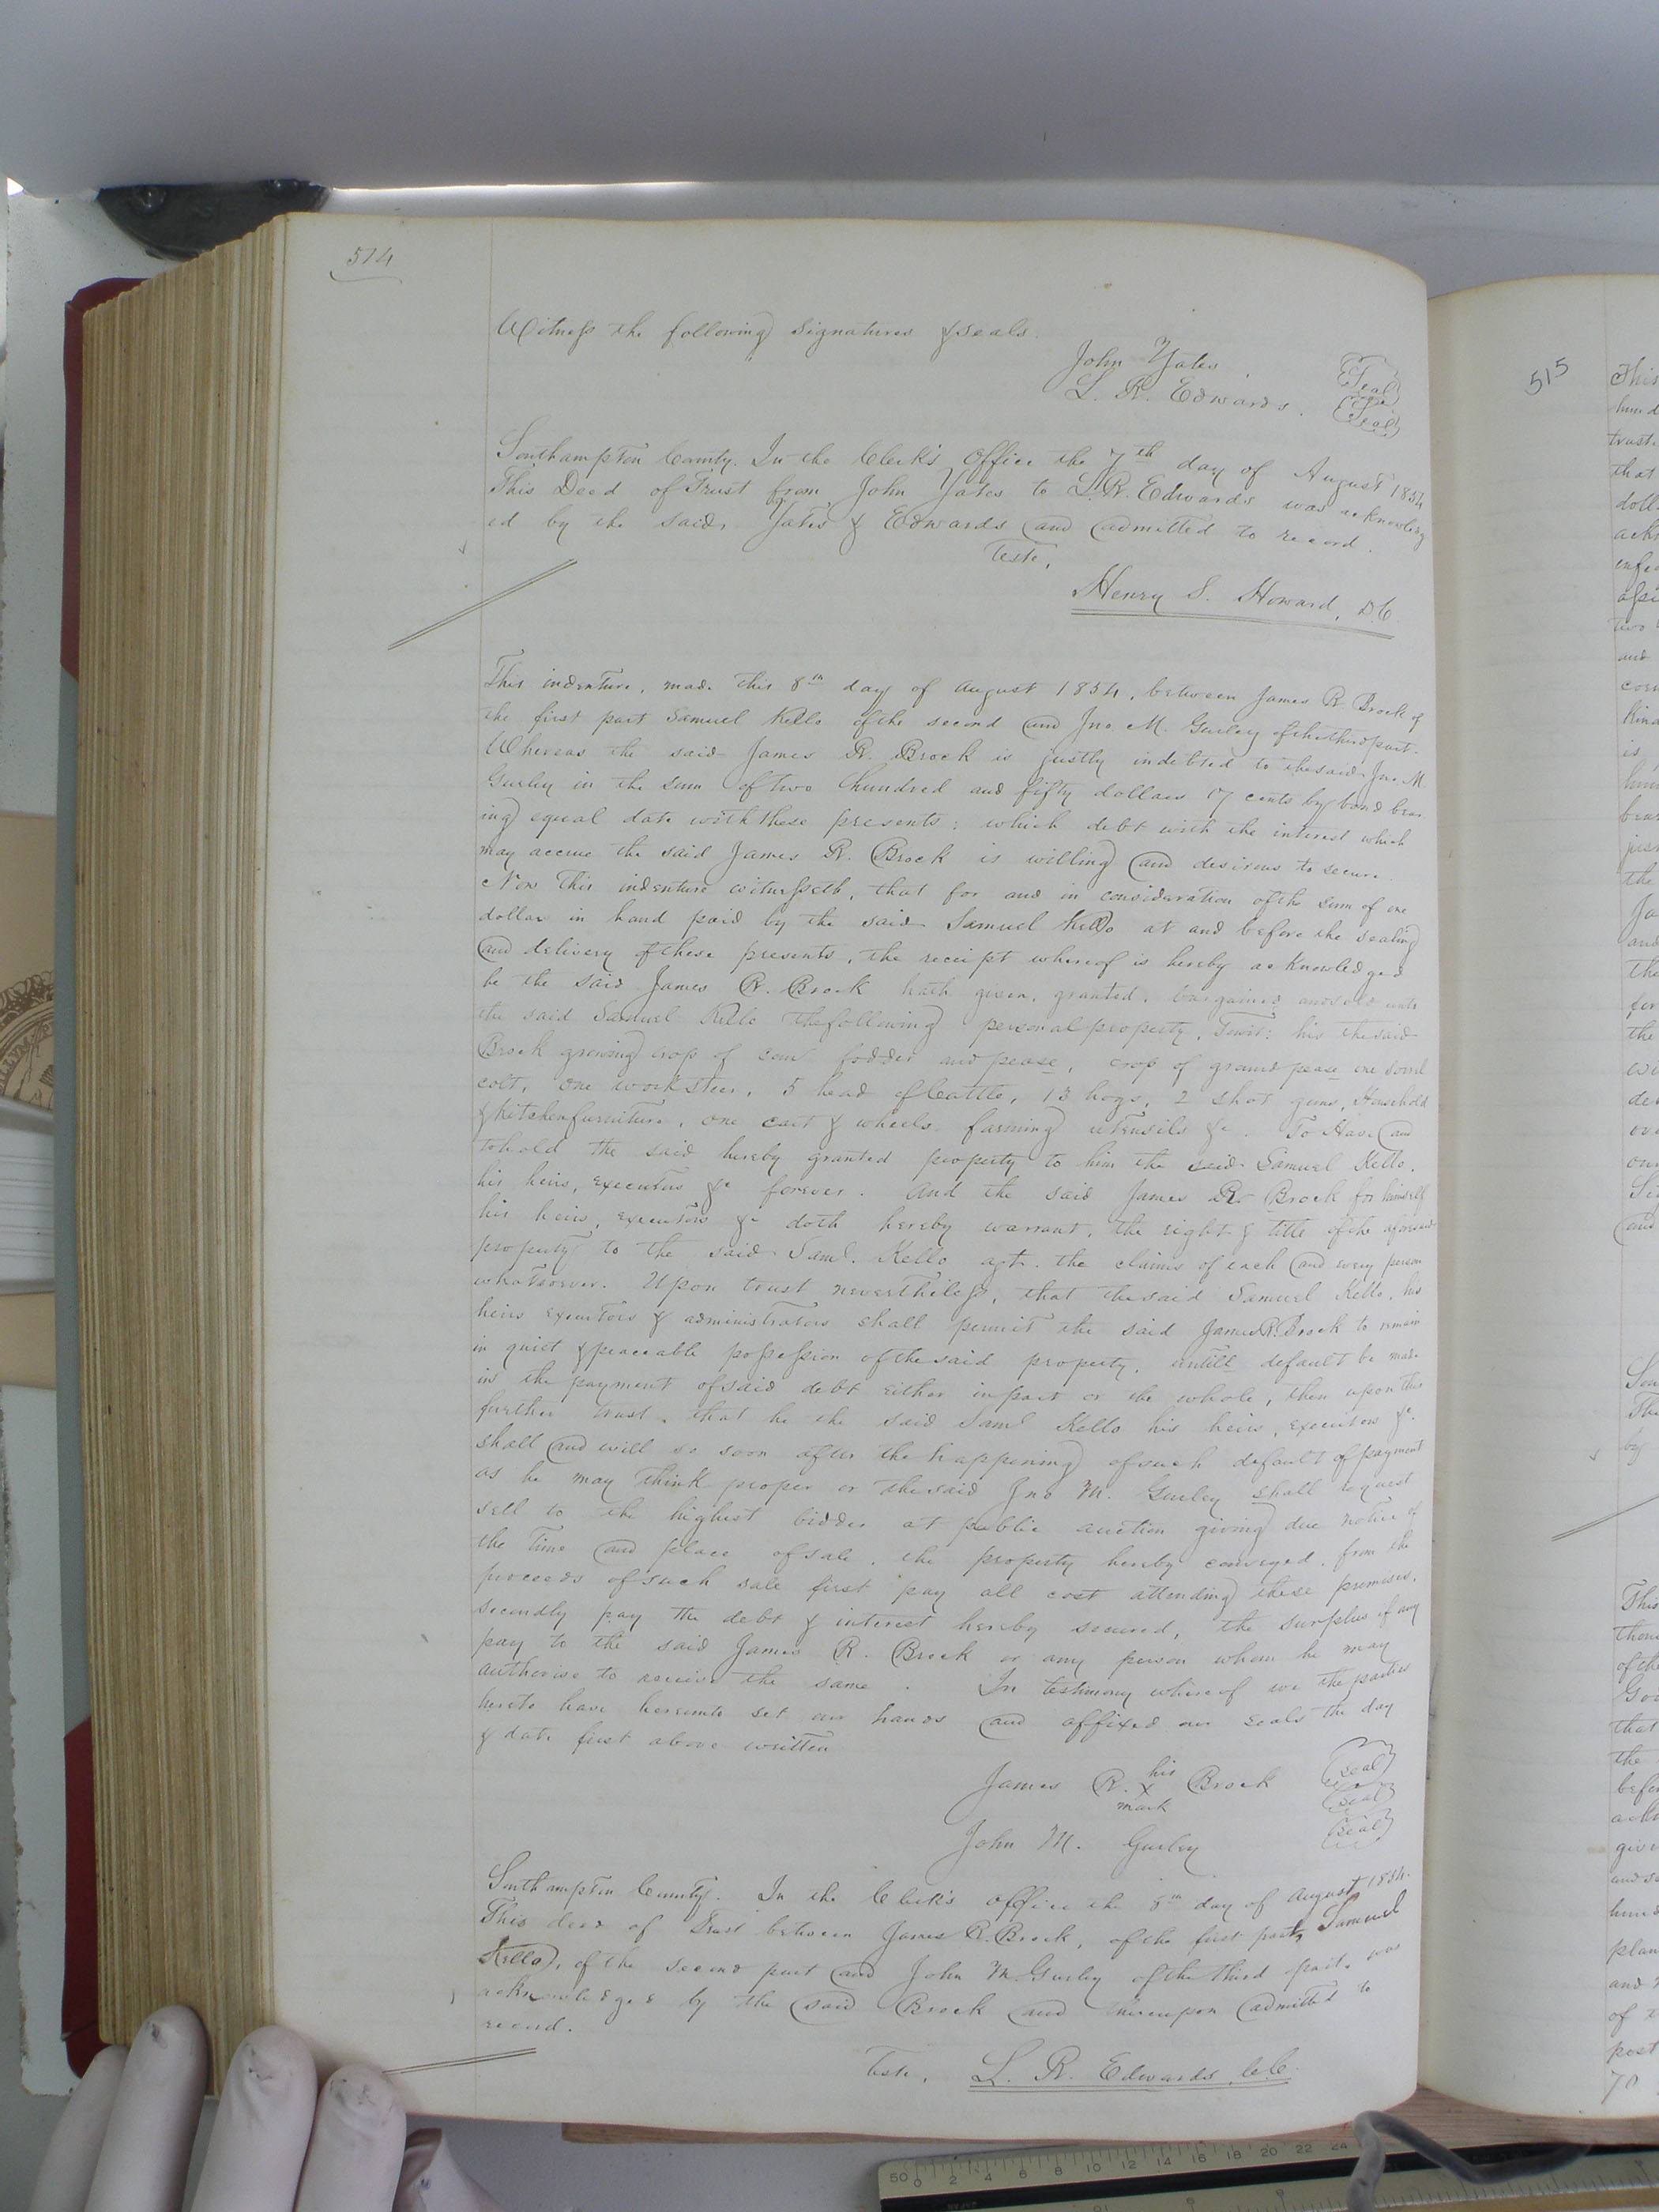 514
Witness the following signatures & seals.
John Yates (Seal)
L. R. Edwards. (Seal)
Southampton County. In the Clerk's Office the 7th day of August 1854
This Deed of Trust from John Yates to L. R. Edwards was acknowledg
ed by the said Yates & Edwards and admitted to record.
Teste,
Henry S. Howard, D.C.
This indenture, made this 8th day of August 1854, between James R. Brock of
the first part Samuel Kello of the second and Jno. M. Gurley of the third part.
Whereas the said James R. Brock is justly indebted to the said Jno. M
Gurley in the sum of two hundred and fifty dollars 17 cents by bond bear
ing equal date with these presents; which debt with the interest which
may accrue the said James R. Brock is willing and desirous to secure.
Now this indenture witnesseth, that for and in consideration of the sum of one
dollar in hand paid by the said Samuel Kello at and before the sealing
and delivery of these presents, the receipt whereof is hereby acknowledged
be the said James R. Brock hath given, granted, bargained and sold unto
the said Samuel Kello the following personal property, Towit: his the said
Brock growing crop of corn fodder and pease, crop of ground pease one sorrel
colt, one work steer, 5 head of Cattle, 13 hogs, 2 shot guns, Household
& Kitchen furniture, one cart & wheels farming utensils &c. To Have and
to hold the said hereby granted property to him the said Samuel Kello,
his heirs, executors &c forever. And the said James R. Brock for himself
his heirs, executors &c doth hereby warrant, the right & title of the aforesaid
property to the said Saml. Kello agt. the claims of each and every person
whatsoever. Upon trust nevertheless, that the said Samuel Kello, his
heirs executors & administrators shall permit the said James R. Brock to remain
in quiet & peaceable possession of the said property, untill default be made
in the payment of said debt either in part or the whole, then upon this
further trust, that he the said Saml Kello his heirs, executors &c.
shall and will so soon after the happening of such default of payment
as he may think proper or the said Jno M. Gurley shall request
sell to the highest bidder at public auction giving due notice of
the time and place of sale, the property hereby conveyed, from the
proceeds of such sale first pay all cost attending these premises,
secondly pay the debt & interest hereby secured, the surplus if any
pay to the said James R. Brock or any person whom he may
authorise to receive the same. In testimony whereof we the parties
hereto have hereunto set our hands and affixed our seals the day
& date first above written
James R. his x mark Brock (seal)
(seal)
John M. Gurley (seal)
Southampton County. In the Clerk's Office the 8th day of August 1854.
This deed of Trust between James R. Brock, of the first part, Samuel
Kello, of the second part and John M Gurley of the third part. was
acknowledged by the said Brock and thereupon admitted to
record.
Teste, L. R. Edwards, C.C.
515